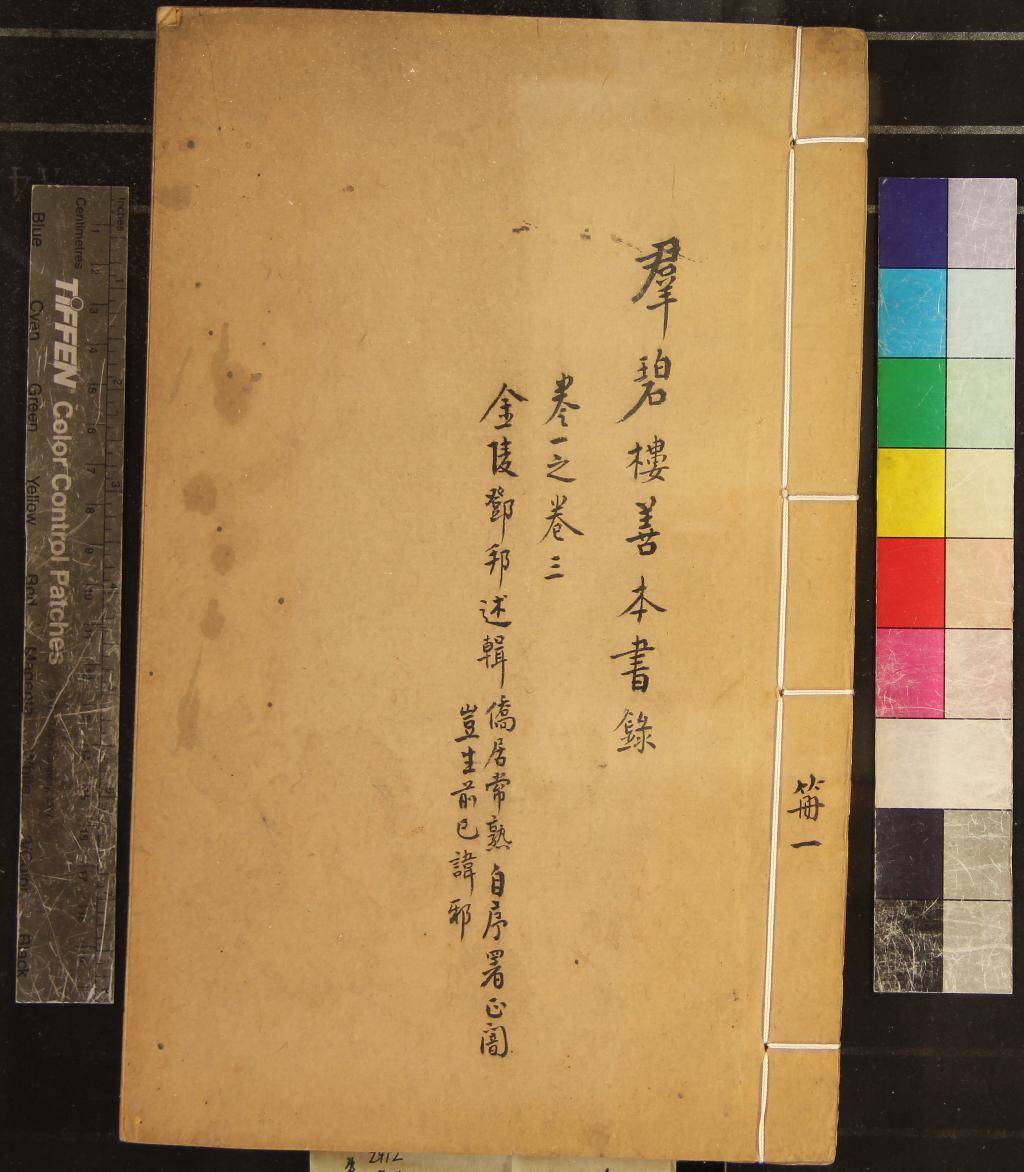 羣碧樓善本書錄
卷一之卷三
金陵鄧邦述輯 僑居常熟自序署正闇
豈生前已諱邪
冊一
Inches
Centimetres
TIFFEN Color Control Patches
Blue
Cyan
Green
Yellow
Red
Magenta
Black
2412